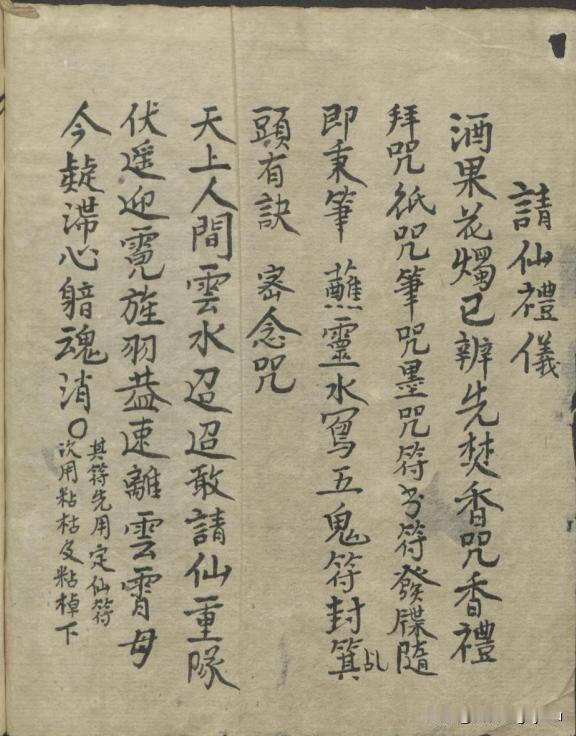 請仙禮儀
酒果花燭已辨先焚香咒香禮
拜咒紙咒筆咒墨咒符書符發牒隨
即秉筆 蘸靈水寫五鬼符封箕乩
頭有訣 宻念咒
天上人間雲水迢迢敢請仙重隊
伏遥迎霓旌羽蓋速離雲霄毋
今凝滯心暗魂消〇
其符先用定仙符
次用粘枯及粘棹下